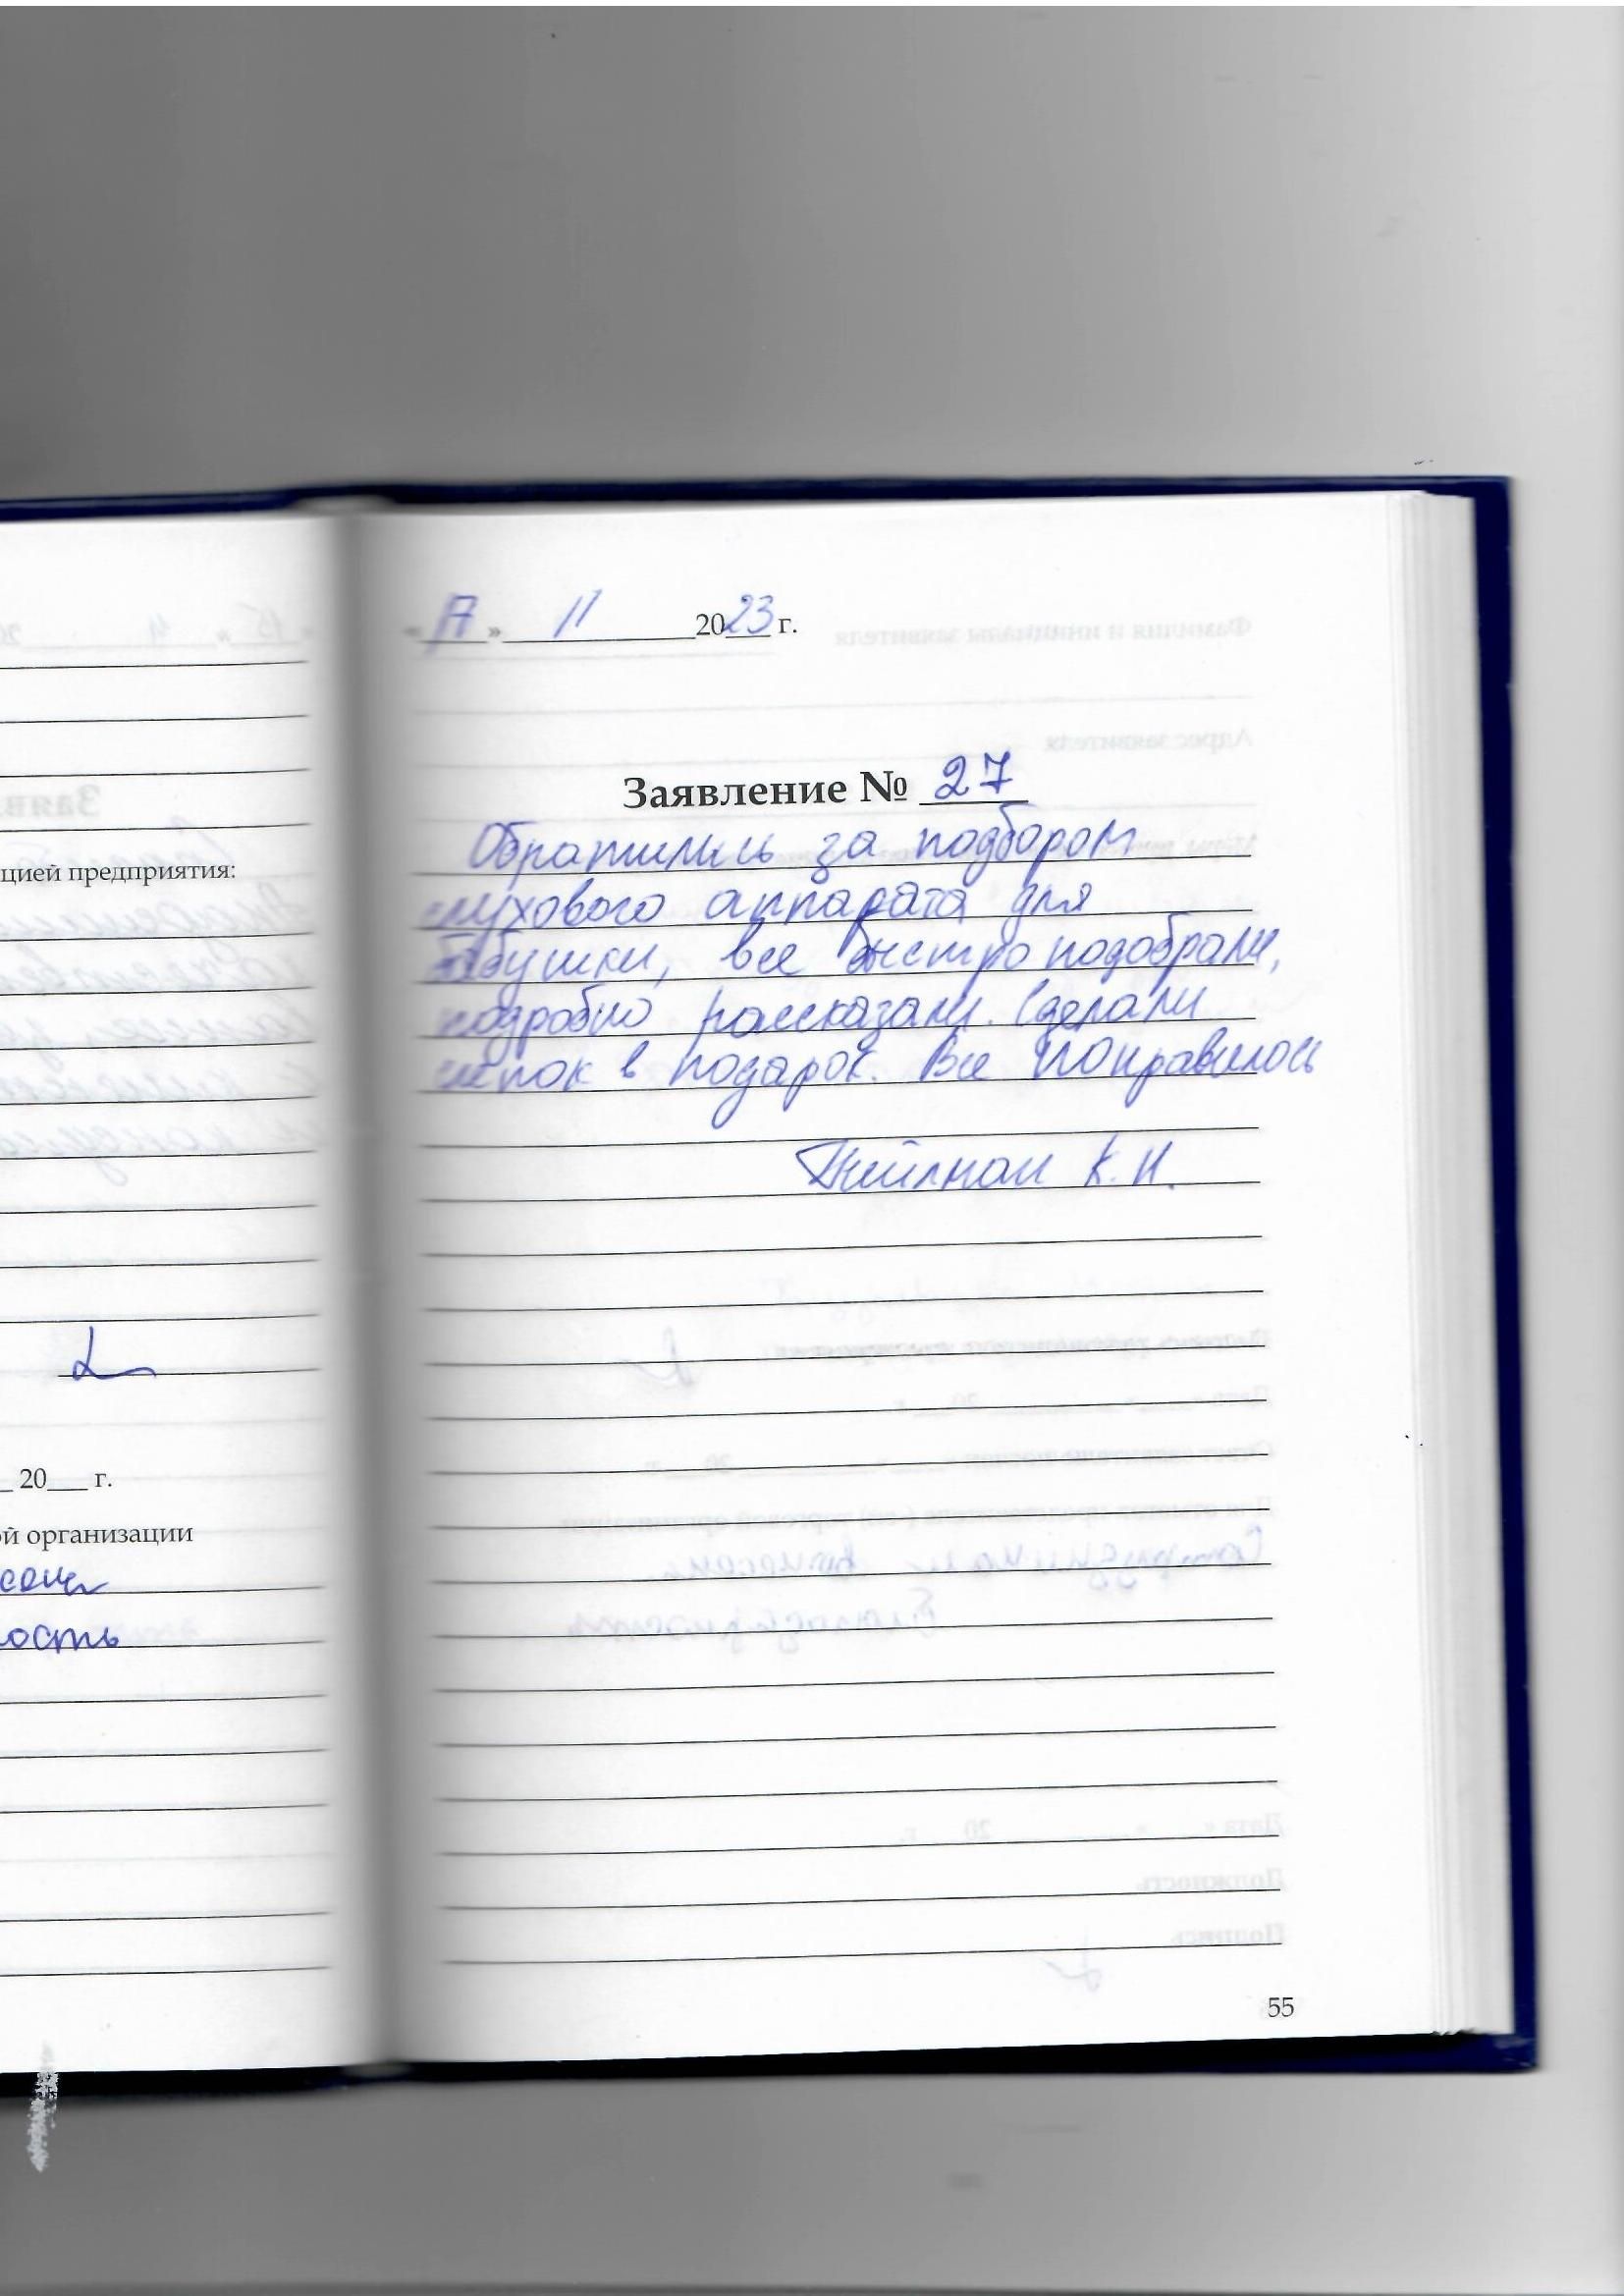 цией предприятия:
20___ г.
ой организации
ость
«17» 11 2023 г.
Заявление № 27
Обратились за подбором
слухового аппарата для
бабушки, все быстро подобрали,
подробно рассказали. Сделали
слепок в подарок. Все понравилось
К.И.
55